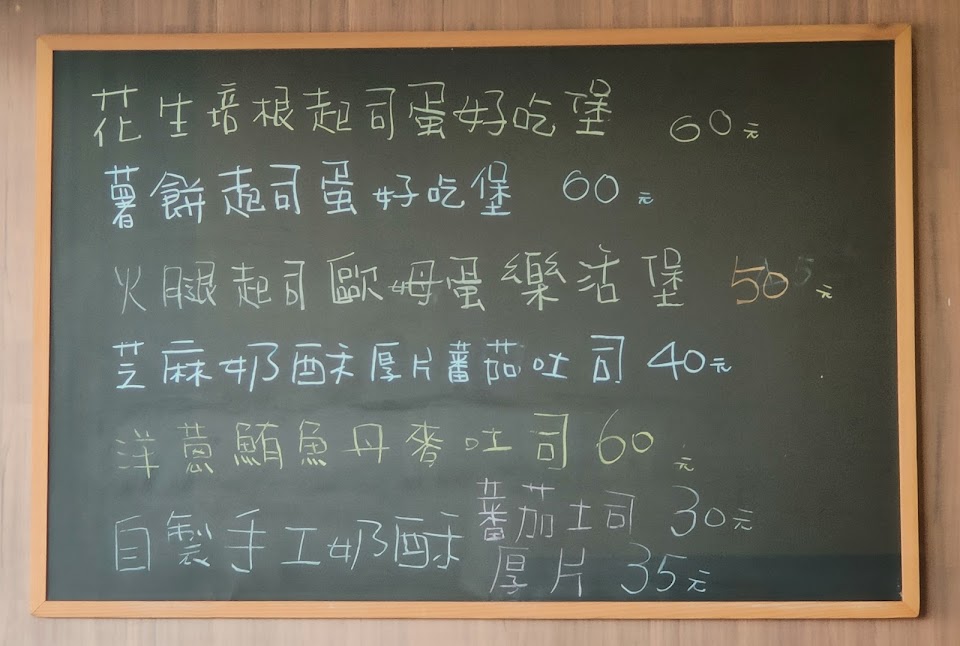 花生培根起司蛋好吃堡 60元
薯餅起司蛋好吃堡 60元
火腿起司歐姆蛋樂活堡 50元
芝麻奶酥厚片蕃茄吐司 40元
洋蔥鮪魚丹麥吐司 60元
自製手工奶酥 蕃茄土司 30元
厚片 35元